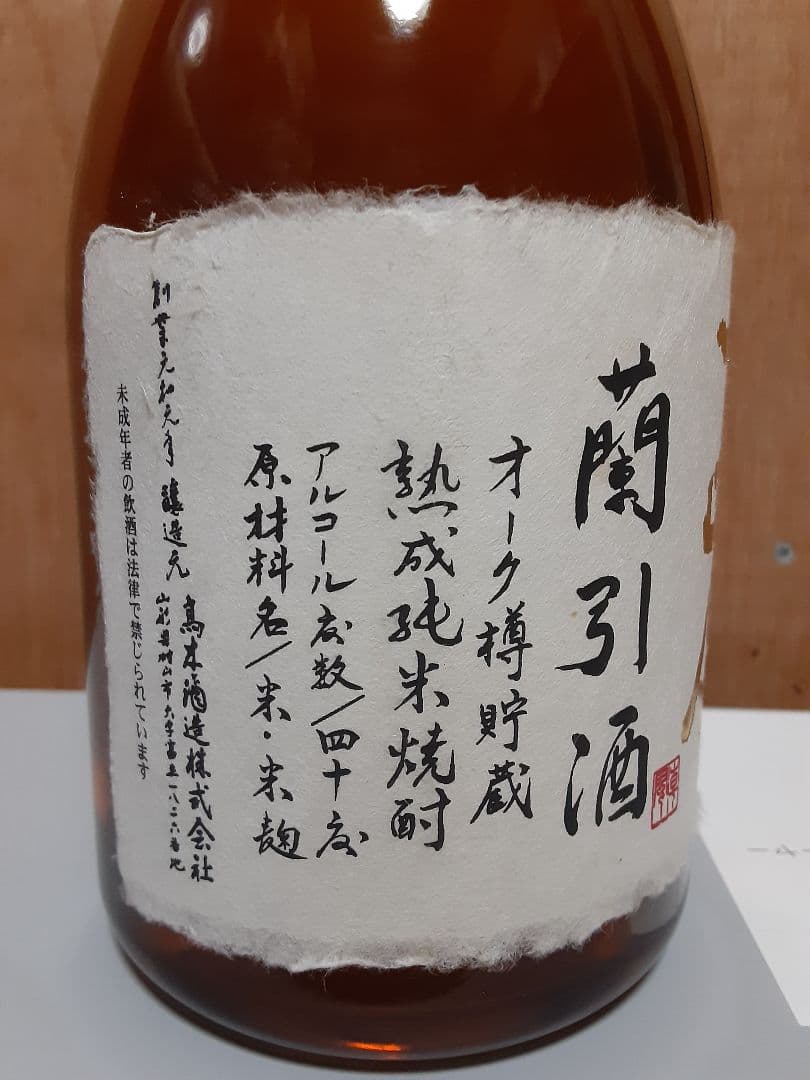 蘭引酒
オーク樽貯蔵
熟成純米焼酎
アルコール度数/四十度
原材料名/米・米麹
創業元和元年 醸造元 高木酒造株式会社
山形県村山市大字富並一八二六番地
未成年者の飲酒は法律で禁じられています